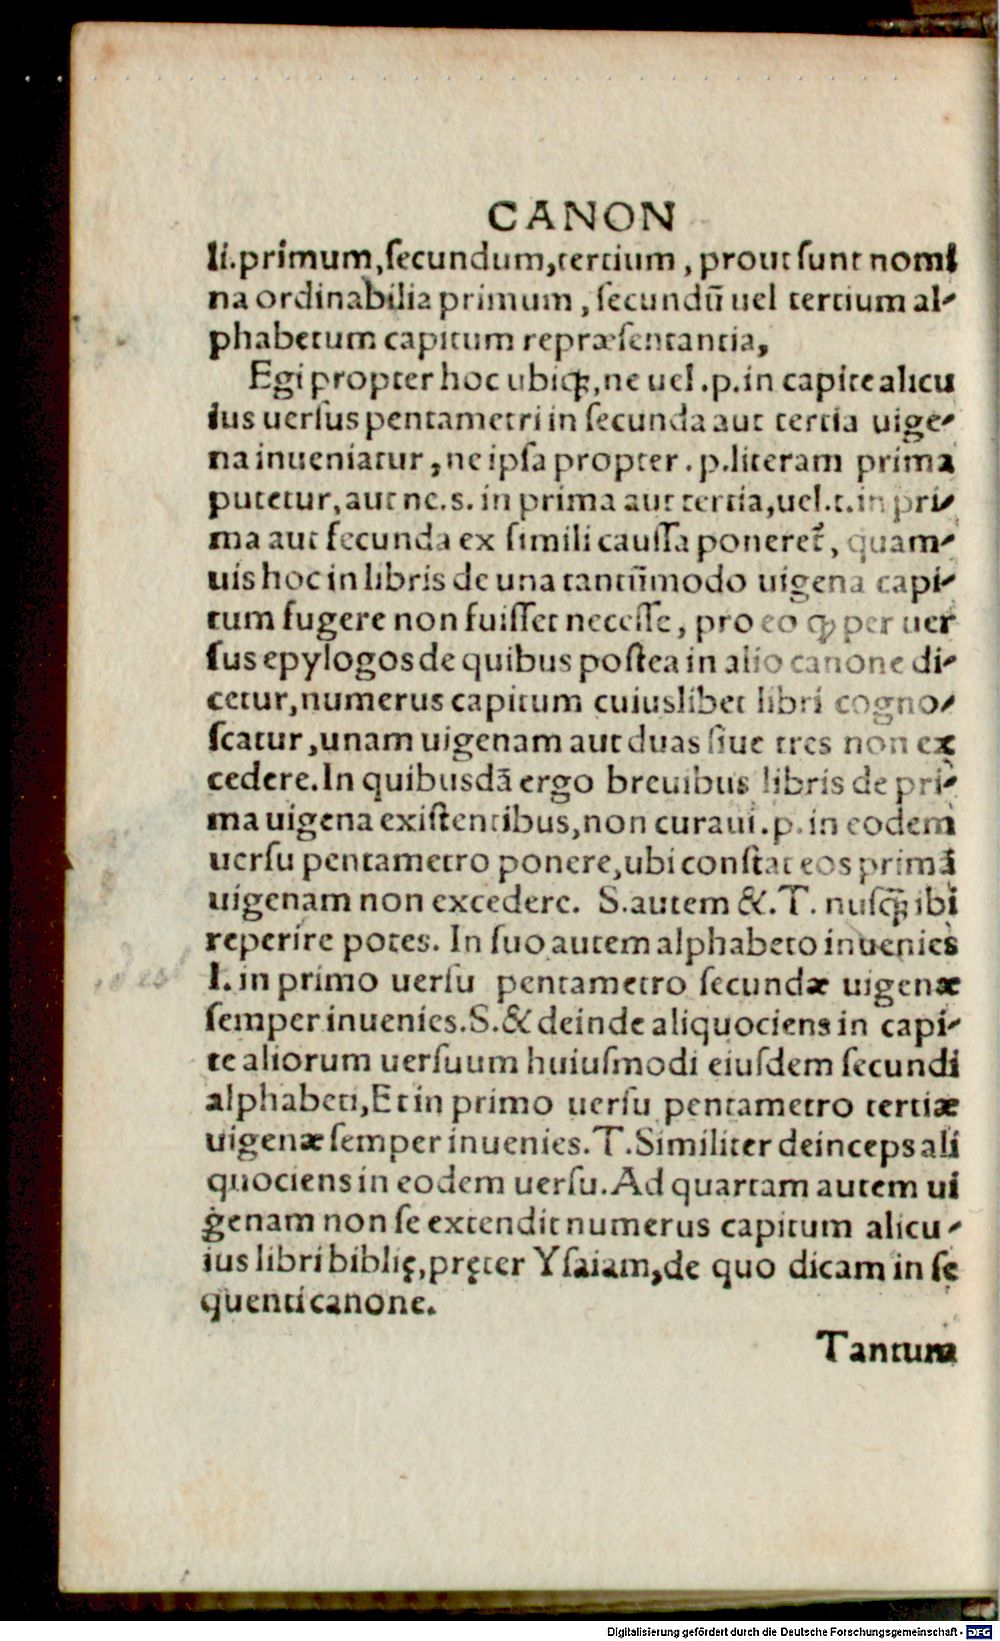 CANON
li.primum,ſecundum,tertium, prout ſunt nomi
na ordinabilia primum, ſecundū uel tertium al-
phabetum capitum repræſentantia,
Egi propter hoc ubiqꝫ,ne uel .p.in capite alicu
ius uerſus pentametri in ſecunda aut tertia uige-
na inueniatur, ne ipſa propter .p.literam prima
putetur, aut ne.s. in prima aut tertia,uel.t.in pri-
ma aut ſecunda ex ſimili cauſſa poneret̃, quam-
uis hoc in libris de una tantūmodo uigena capi-
tum fugere non fuiſſet neceſſe, pro eo ꝙ per uer
ſus epylogos de quibus poſtea in alio canone di-
cetur, numerus capitum cuiuslibet libri cogno-
ſcatur, unam uigenam aut duas ſiue tres non ex
cedere. In quibusdā ergo breuibus libris de pri-
ma uigena exiſtentibus, non curaui .p. in eodem
uerſu pentametro ponere, ubi conſtat eos primā
uigenam non excedere. S. autem &. T. nuſqꝫ̃ ibi
reperire potes. In ſuo autem alphabeto inuenies
I. in primo uerſu pentametro ſecundæ uigenæ
ſemper inuenies. S. & deinde aliquociens in capi-
te aliorum uerſuum huiuſmodi eiuſdem ſecundi
alphabeti, Et in primo uerſu pentametro tertiæ
uigenæ ſemper inuenies. T. Similiter deinceps ali
quociens in eodem uerſu. Ad quartam autem ui
genam non ſe extendit numerus capitum alicu-
ius libri biblię, pręter Yſaiam, de quo dicam in ſe
quenti canone.
Tantum
Digitalisierung gefördert durch die Deutsche Forschungsgemeinschaft - DFG